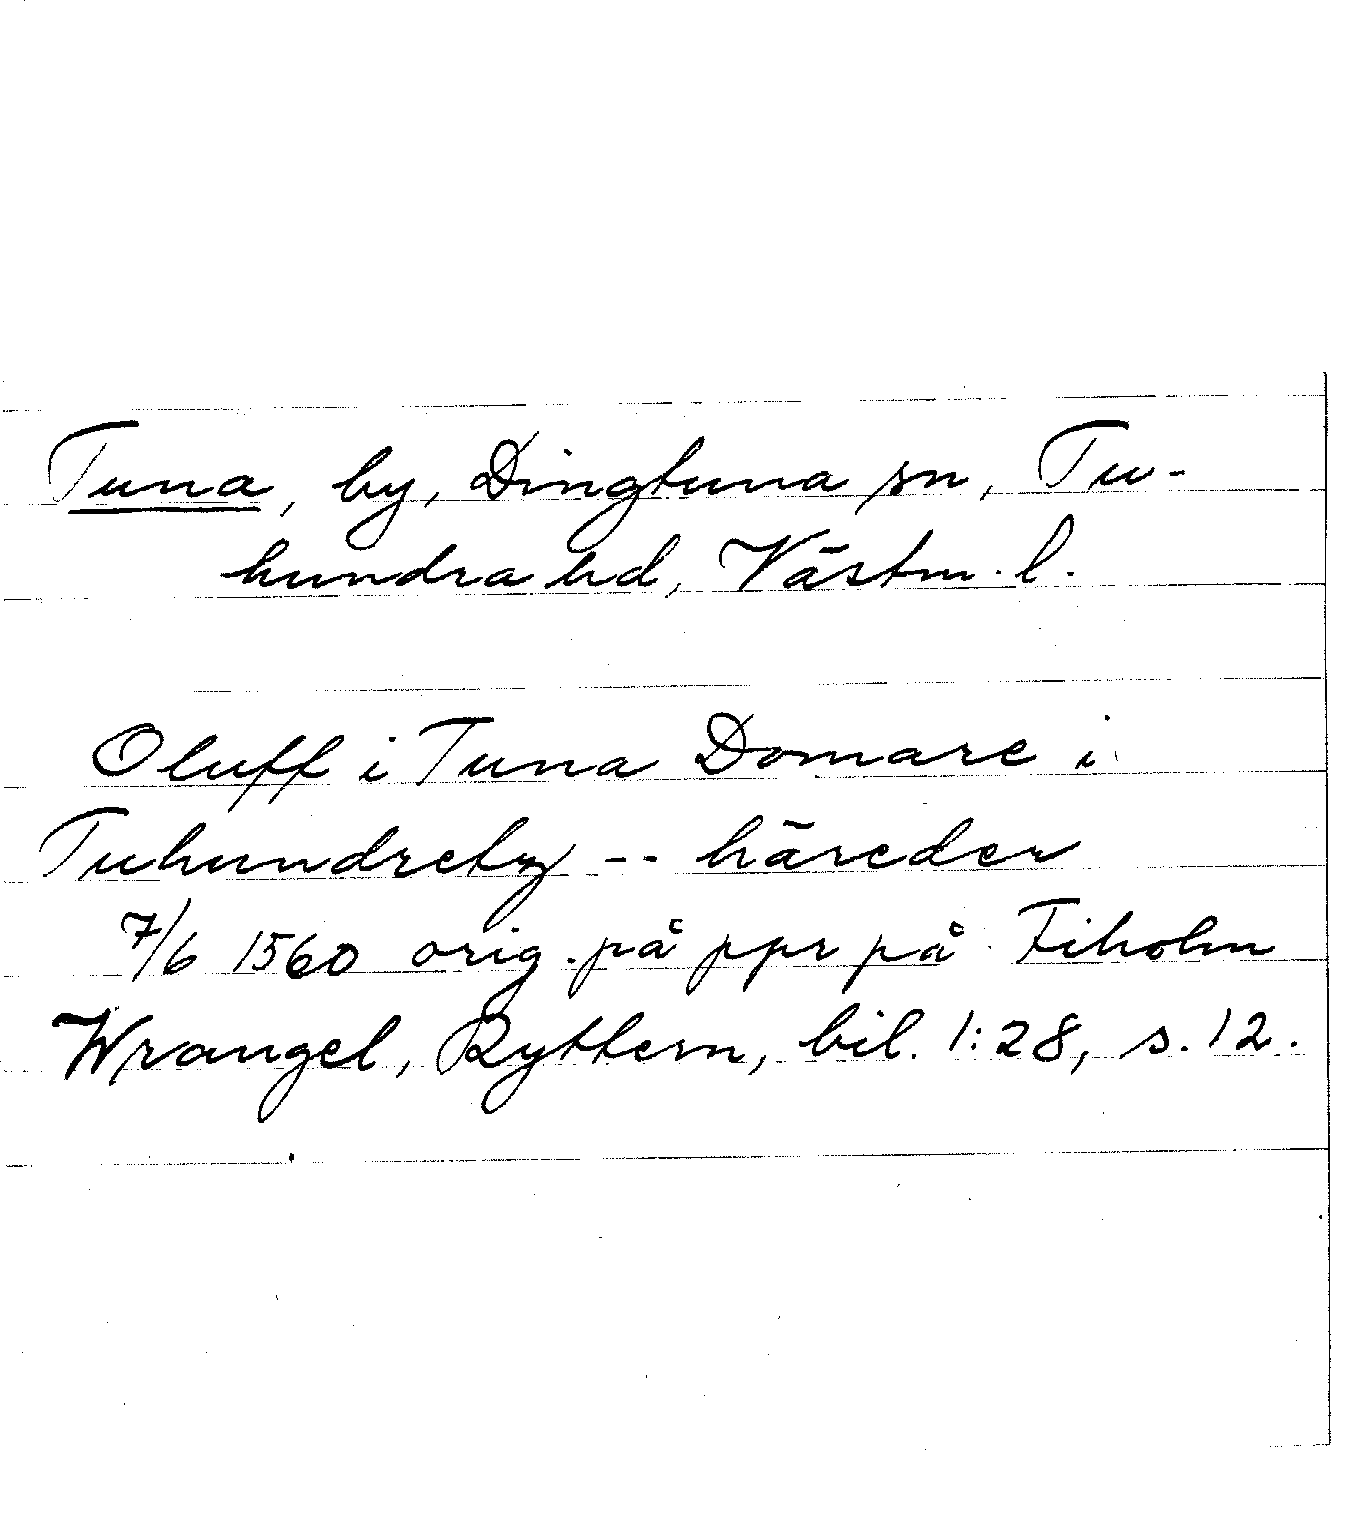 Tuna, by, Dingtuna sn, Tu-
hundra hd, Västm. l.
Oluff i Tuna Domare i
Tuhundretz -- häreder
7/6 1560 orig. på ppr på Fiholm
Wrangel, Ryttern, bil. 1:28, s. 12.